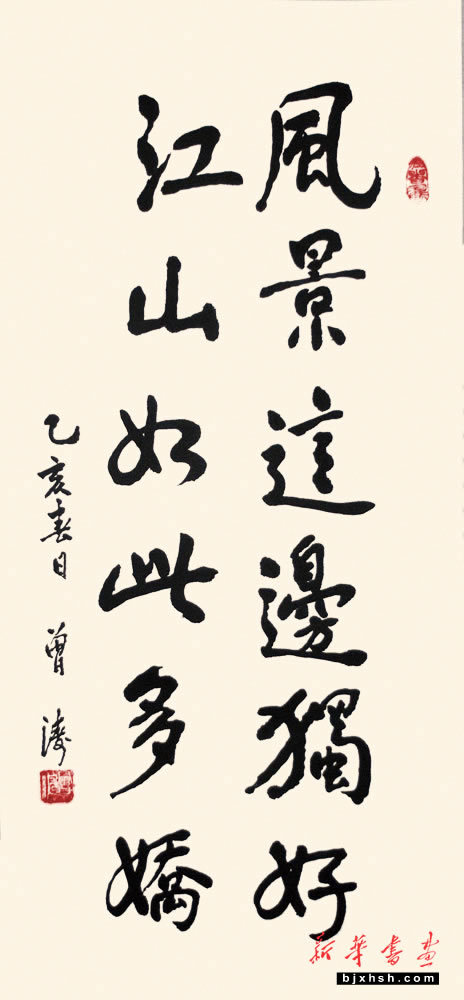 風景這邊獨好
江山如此多嬌
乙亥春日 曾濤
新華書畫
bjxhsh.com